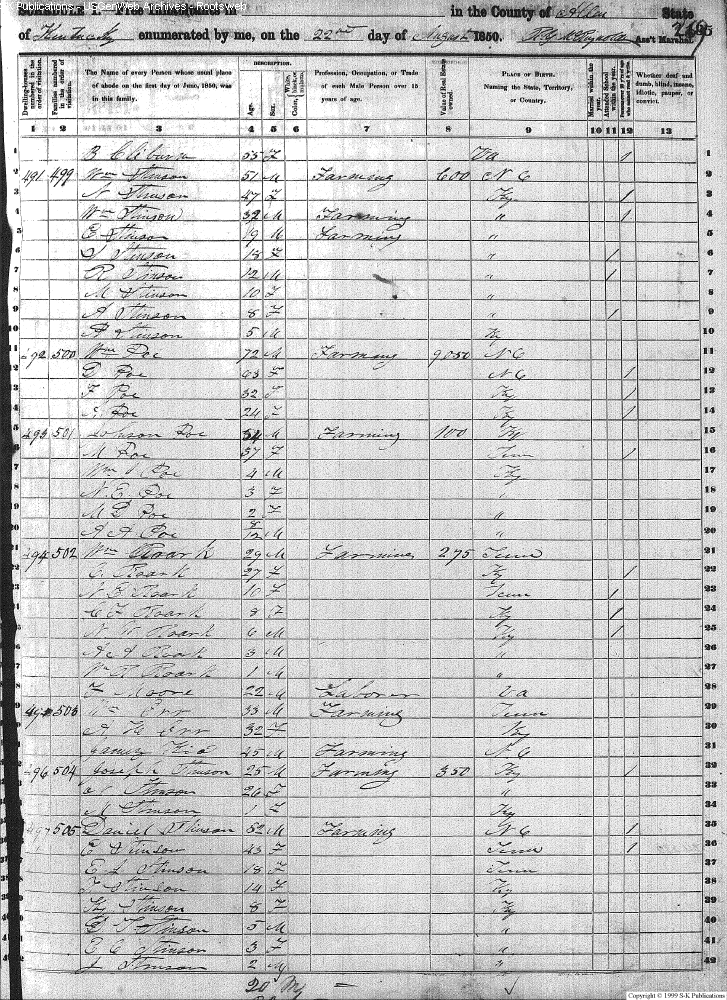 K Publications - USGenWeb Archives - Rootsweb
in the County of Allen State
of Kentucky enumerated by me, on the 22nd day of August 1850. Ass't Marshal.
Dwelling-houses numbered in the order of visitation.
Families numbered in the order of visitation.
The Name of every Person whose usual place of abode on the first day of June, 1850, was in this family.
DESCRIPTION.
Age.
Sex.
Color, White, black, or mulatto.
Profession, Occupation, or Trade of each Male Person over 15 years of age.
Value of Real Estate owned.
PLACE OF BIRTH. Naming the State, Territory, or Country.
Married within the year.
Attended School within the year.
Whether deaf and dumb, blind, insane, idiotic, pauper, or convict.
1 2 3 4 5 6 7 8 9 10 11 12 13
1 B Cliburn 55 F Va / 1
491 499 Wm Stinson 51 M Farming 600 N C 2
3 N Stinson 47 F Ky / 3
4 Wm Stinson 32 M Farming " / 4
5 E Stinson 19 M Farming " 5
6 S Stinson 18 F " / 6
7 R Stinson 12 M " / 7
8 M Stinson 10 F " 8
9 A Stinson 8 F " / 9
10 Stinson 5 M Ky 10
492 500 Wm Poe 72 M Farming 9050 N C 11
12 Poe 63 F N C / 12
13 F Poe 32 F Ky / 13
14 Poe 24 F Ky / 14
493 501 Johnson Poe 54 M Farming 100 Ky 15
16 M Poe 37 F Tenn / 16
17 Wm Poe 4 M Ky 17
18 N. E. Poe 3 F " 18
19 M Poe 2 F " 19
20 A A Poe 8/12 M " 20
494 502 Wm Roark 29 M Farming 275 Tenn 21
22 Roark 27 F Ky / 22
23 Roark 10 F Tenn / 23
24 Roark 8 F Ky / 24
25 N W Roark 6 M Ky / 25
26 A A Roark 3 M " 26
27 Wm R Roark 1 M " 27
28 Moore 22 M Laborer Va 28
503 Orr 33 M Farming Tenn 29
30 Orr 32 F Ky 30
31 45 M Farming N C 31
496 504 Joseph Stinson 25 M Farming 350 Ky / 32
33 Stinson 26 F " 33
34 M Stinson 1 F Ky 34
497 505 Daniel Stinson 52 M Farming N C / 35
36 E Stinson 43 F Tenn / 36
37 E L Stinson 18 F Tenn 37
38 Stinson 14 F Ky 38
39 Stinson 8 F Ky 39
40 Stinson 5 M " 40
41 E C Stinson 3 F " 41
42 Stinson 2 M " 42
Copyright © 1999 S-K Publications